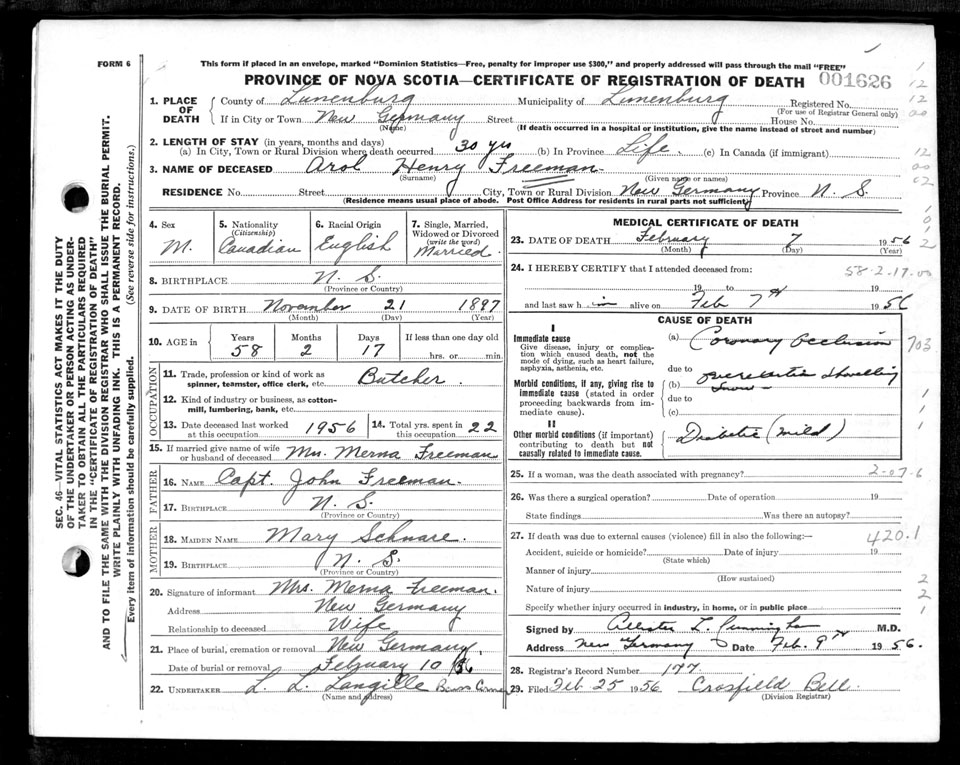 FORM 6
This form if placed in an envelope, marked "Dominion Statistics—Free, penalty for improper use $300," and properly addressed will pass through the mail "FREE"
PROVINCE OF NOVA SCOTIA—CERTIFICATE OF REGISTRATION OF DEATH 001626
1. PLACE OF DEATH County of Lunenburg Municipality of Lunenburg Registered No.
(For use of Registrar General only)
If in City or Town New Germany Street House No.
(Name) (If death occurred in a hospital or institution, give the name instead of street and number)
2. LENGTH OF STAY (in years, months and days)
(a) In City, Town or Rural Division where death occurred 30 yrs (b) In Province Life. (c) In Canada (if immigrant)
3. NAME OF DECEASED Arol Henry Freeman
(Surname) (Given name or names)
RESIDENCE No. Street City, Town or Rural Division New Germany Province N. S.
(Residence means usual place of abode. Post Office Address for residents in rural parts not sufficient)
4. Sex
M.
5. Nationality
(Citizenship)
Canadian
6. Racial Origin
English
7. Single, Married, Widowed or Divorced
(write the word)
Married.
8. BIRTHPLACE N. S.
(Province or Country)
9. DATE OF BIRTH November 21 1897
(Month) (Day) (Year)
10. AGE IN
Years Months Days If less than one day old
58 2 17 hrs. or min.
OCCUPATION
11. Trade, profession or kind of work as spinner, teamster, office clerk, etc. Butcher.
12. Kind of industry or business, as cotton-mill, lumbering, bank, etc.
13. Date deceased last worked at this occupation 1956
14. Total yrs. spent in this occupation 22
15. If married give name of wife or husband of deceased Mrs. Merna Freeman
FATHER
16. NAME Capt. John Freeman.
17. BIRTHPLACE N. S.
(Province or Country)
MOTHER
18. MAIDEN NAME Mary Schnare.
19. BIRTHPLACE N. S.
(Province or Country)
20. Signature of informant Mrs. Merna Freeman.
Address New Germany
Relationship to deceased Wife
21. Place of burial, cremation or removal New Germany.
Date of burial or removal February 10/56
22. UNDERTAKER L. L. Langille
(Name and address)
MEDICAL CERTIFICATE OF DEATH
23. DATE OF DEATH February 7 1956
(Month) (Day) (Year)
24. I HEREBY CERTIFY that I attended deceased from:
58-2-17-00
19 to 19
and last saw h im alive on Feb 7th 1956
CAUSE OF DEATH
I
Immediate cause
Give disease, injury or complication which caused death, not the mode of dying, such as heart failure, asphyxia, asthenia, etc.
(a) Coronary Occlusion 703
due to
Morbid conditions, if any, giving rise to immediate cause (stated in order proceeding backwards from immediate cause).
(b) overexertion shovelling snow
due to
(c)
II
Other morbid conditions (if important) contributing to death but not causally related to immediate cause.
Diabetic (mild)
25. If a woman, was the death associated with pregnancy? 2-07-6
26. Was there a surgical operation? Date of operation 19
State findings Was there an autopsy?
27. If death was due to external causes (violence) fill in also the following:— 420.1
Accident, suicide or homicide? Date of injury 19
(State which)
Manner of injury
(How sustained)
Nature of injury
Specify whether injury occurred in industry, in home, or in public place
Signed by L. Cunningham M.D.
Address New Germany Date Feb. 9th 1956.
28. Registrar's Record Number 177.
29. Filed Feb 25 1956 Crosfield Bell.
(Division Registrar)
SEC. 46—VITAL STATISTICS ACT MAKES IT THE DUTY
OF THE UNDERTAKER OR PERSON ACTING AS UNDER-
TAKER TO OBTAIN ALL THE PARTICULARS REQUIRED
IN THE "CERTIFICATE OF REGISTRATION OF DEATH"
AND TO FILE THE SAME WITH THE DIVISION REGISTRAR WHO SHALL ISSUE THE BURIAL PERMIT.
WRITE PLAINLY WITH UNFADING INK. THIS IS A PERMANENT RECORD.
Every item of information should be carefully supplied. (See reverse side for instructions.)